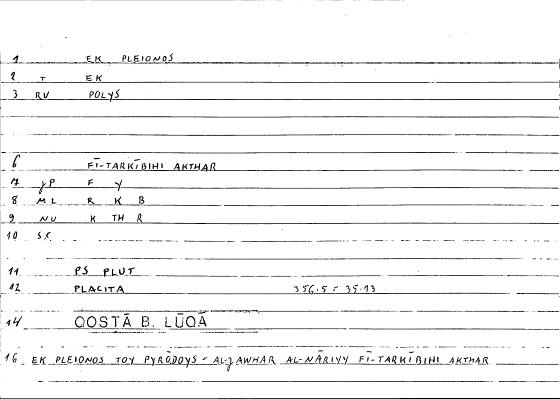 1 EK PLEIONOS
2 T EK
3 RV POLYS
6 FĪ-TARKĪBIHI AKTHAR
7 JP F Y
8 ML R K B
9 NU K TH R
10 SC
11 PS PLUT
12 PLACITA 356.5 = 35.13
14 QOSTĀ B. LŪQĀ
16 EK PLEIONOS TOY PYRŌDOYS - AL-JAWHAR AL-NĀRIYY FĪ-TARKĪBIHI AKTHAR